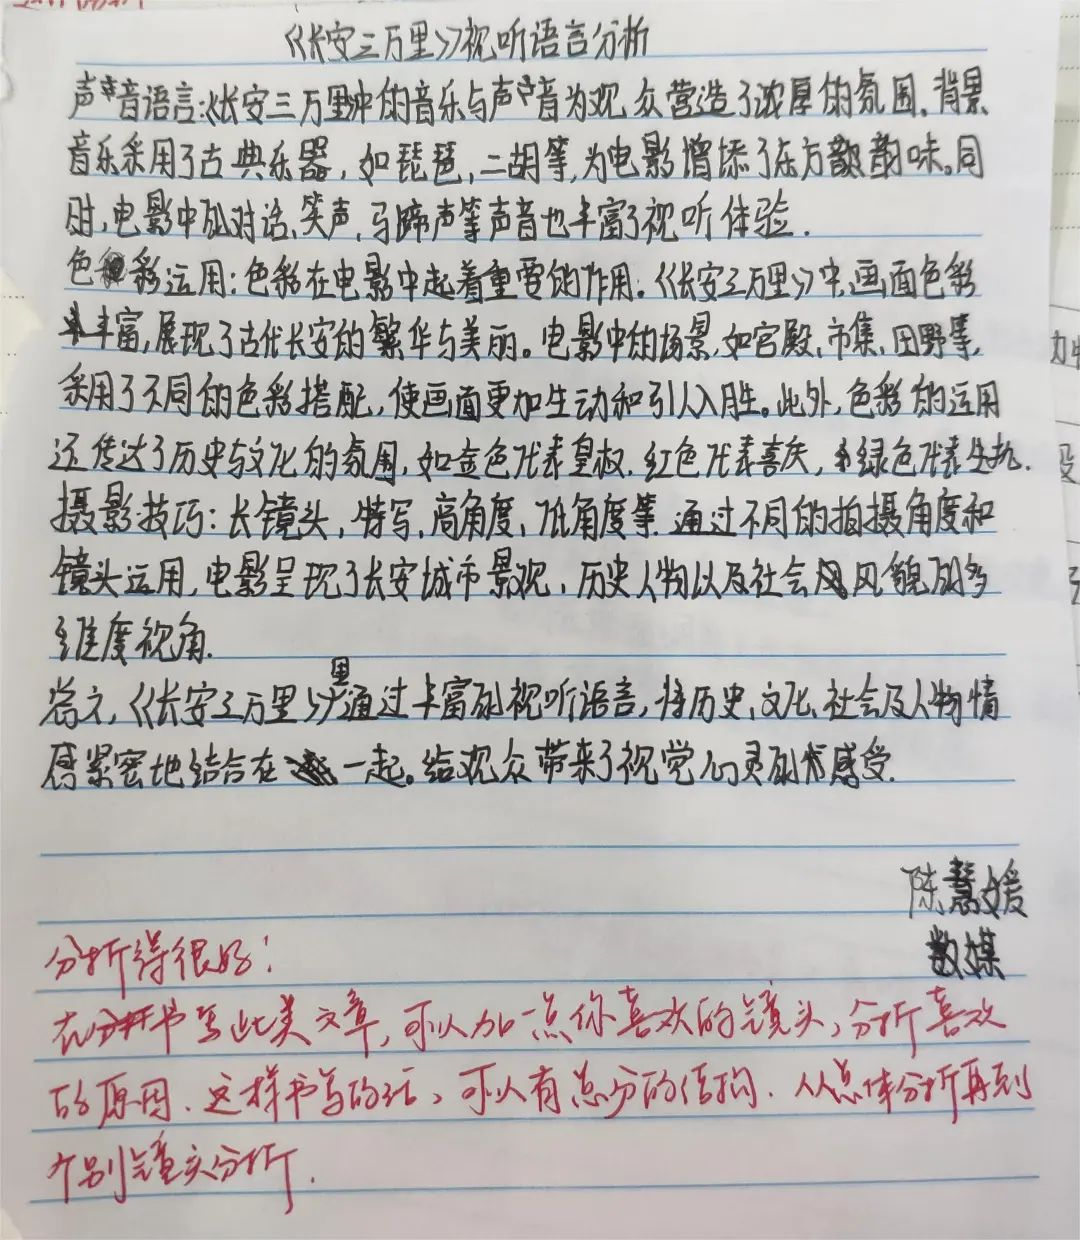 《长安三万里》视听语言分析
声音语言:《长安三万里》中的音乐与声音为观众营造了浓厚的氛围.背景
音乐采用了古典乐器,如琵琶,二胡等,为电影增添了东方韵味。同
时,电影中的对话、笑声,马蹄声等声音也丰富了视听体验.
色彩运用:色彩在电影中起着重要的作用.《长安三万里》中,画面色彩
丰富,展现了古代长安的繁华与美丽。电影中的场景,如宫殿,市集,田野等,
采用了不同的色彩搭配,使画面更加生动和引人入胜。此外,色彩的运用
还传达了历史与文化的氛围,如金色代表皇权.红色代表喜庆,绿色代表生机.
摄影技巧:长镜头,特写,高角度,低角度等.通过不同的拍摄角度和
镜头运用,电影呈现了长安城市景观,历史人物以及社会风貌的多
维度视角.
总之,《长安三万里》通过丰富的视听语言,将历史,文化,社会及人物情
感紧密地结合在一起。给观众带来了视觉心灵的感受.
陈慧媛
数媒
分析得很好!
在书写此类文章,可以加一点你喜欢的镜头,分析喜欢
的原因.这样书写的话,可以有总分的结构.从总体分析再到
个别镜头分析.